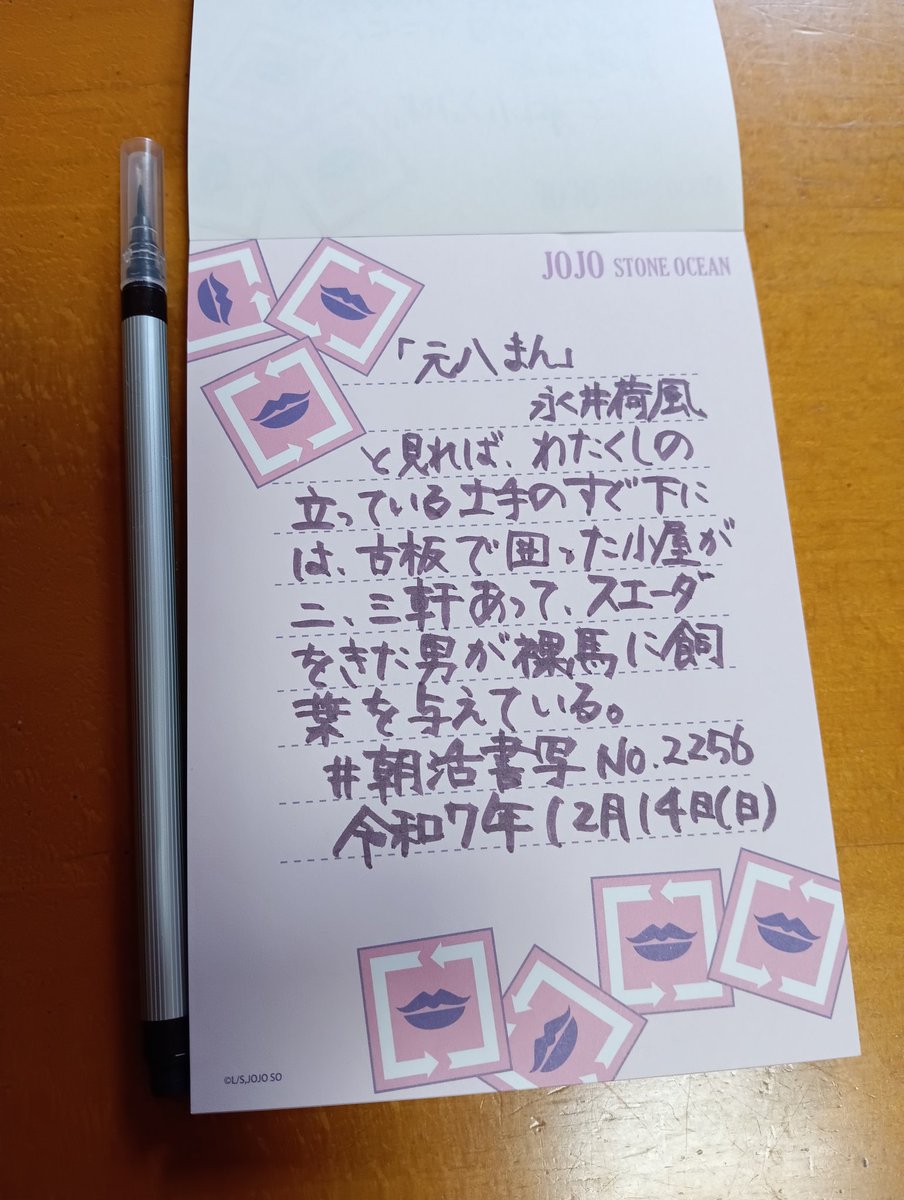 JOJO STONE OCEAN
「元八まん」
永井荷風
と見れば、わたくしの
立っている土手のすぐ下に
は、古板で囲った小屋が
二、三軒あって、スエーダ
をきた男が裸馬に飼
葉を与えている。
#朝活書写 No.2256
令和7年12月14日(日)
©L/S,JOJO SO